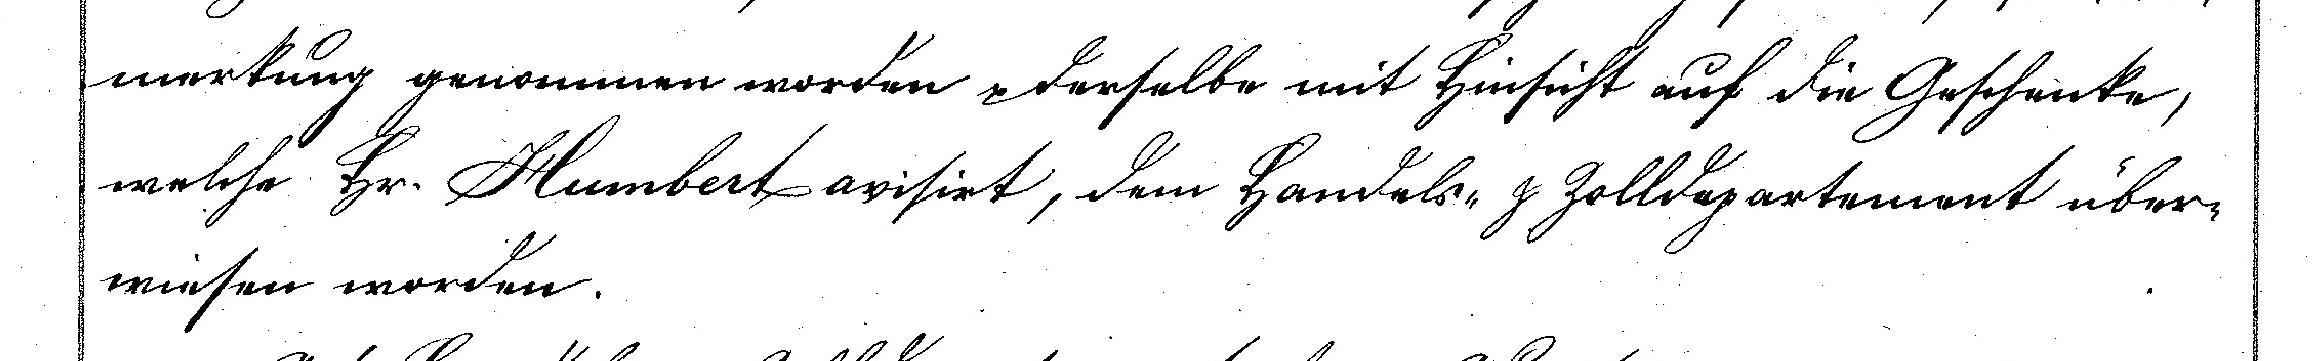 merkung genommen worden u derselbe mit Hinsicht auf die Geschenke,
welche Hr. Humbert avisirt, dem Handels- & Zolldepartement über-
wiesen worden.